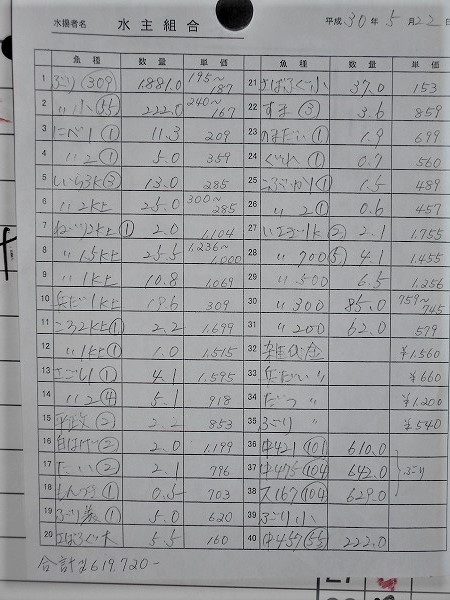 水揚者名 水主組合 平成30年5月22日
魚種 数量 単価
1 ぶり(309) 1881.0 195~187
2 〃小(55) 222.0 240~167
3 にべ1① 11.3 209
4 〃2① 5.0 359
5 しいら3k③ 13.0 285
6 〃2k上 25.0 300~285
7 2k上① 2.0 1,104
8 〃1.5k上 25.5 1,236~1,000
9 〃1k上 10.8 1,069
10 1k上 19.6 309
11 2k上① 2.2 1,699
12 〃1k上① 1.0 1,515
13 さごし1① 4.1 1,595
14 〃2④ 5.1 918
15 ② 2.2 853
16 ② 2.0 1,199
17 たい② 2.1 796
18 もんつき① 0.5 703
19 ① 5.0 620
20 さばふぐ大 5.5 160
合計¥619,720-
魚種 数量 単価
21 さばふぐ小 37.0 153
22 すま③ 3.6 859
23 ① 1.9 699
24 ① 0.7 560
25 ① 1.5 489
26 〃2① 0.6 457
27 ② 2.1 1,755
28 〃700⑤ 4.1 1,455
29 〃500 6.5 1,256
30 〃300 85.0 759~745
31 〃200 62.0 579
32 ¥1,560
33 〃 ¥660
34 だつ〃 ¥1,200
35 ぶり〃 ¥540
36 中421(101) 610.0
37 中475(104) 642.0 ぶり
38 ス167(104) 629.0
39 ぶり小
40 中457(55) 222.0